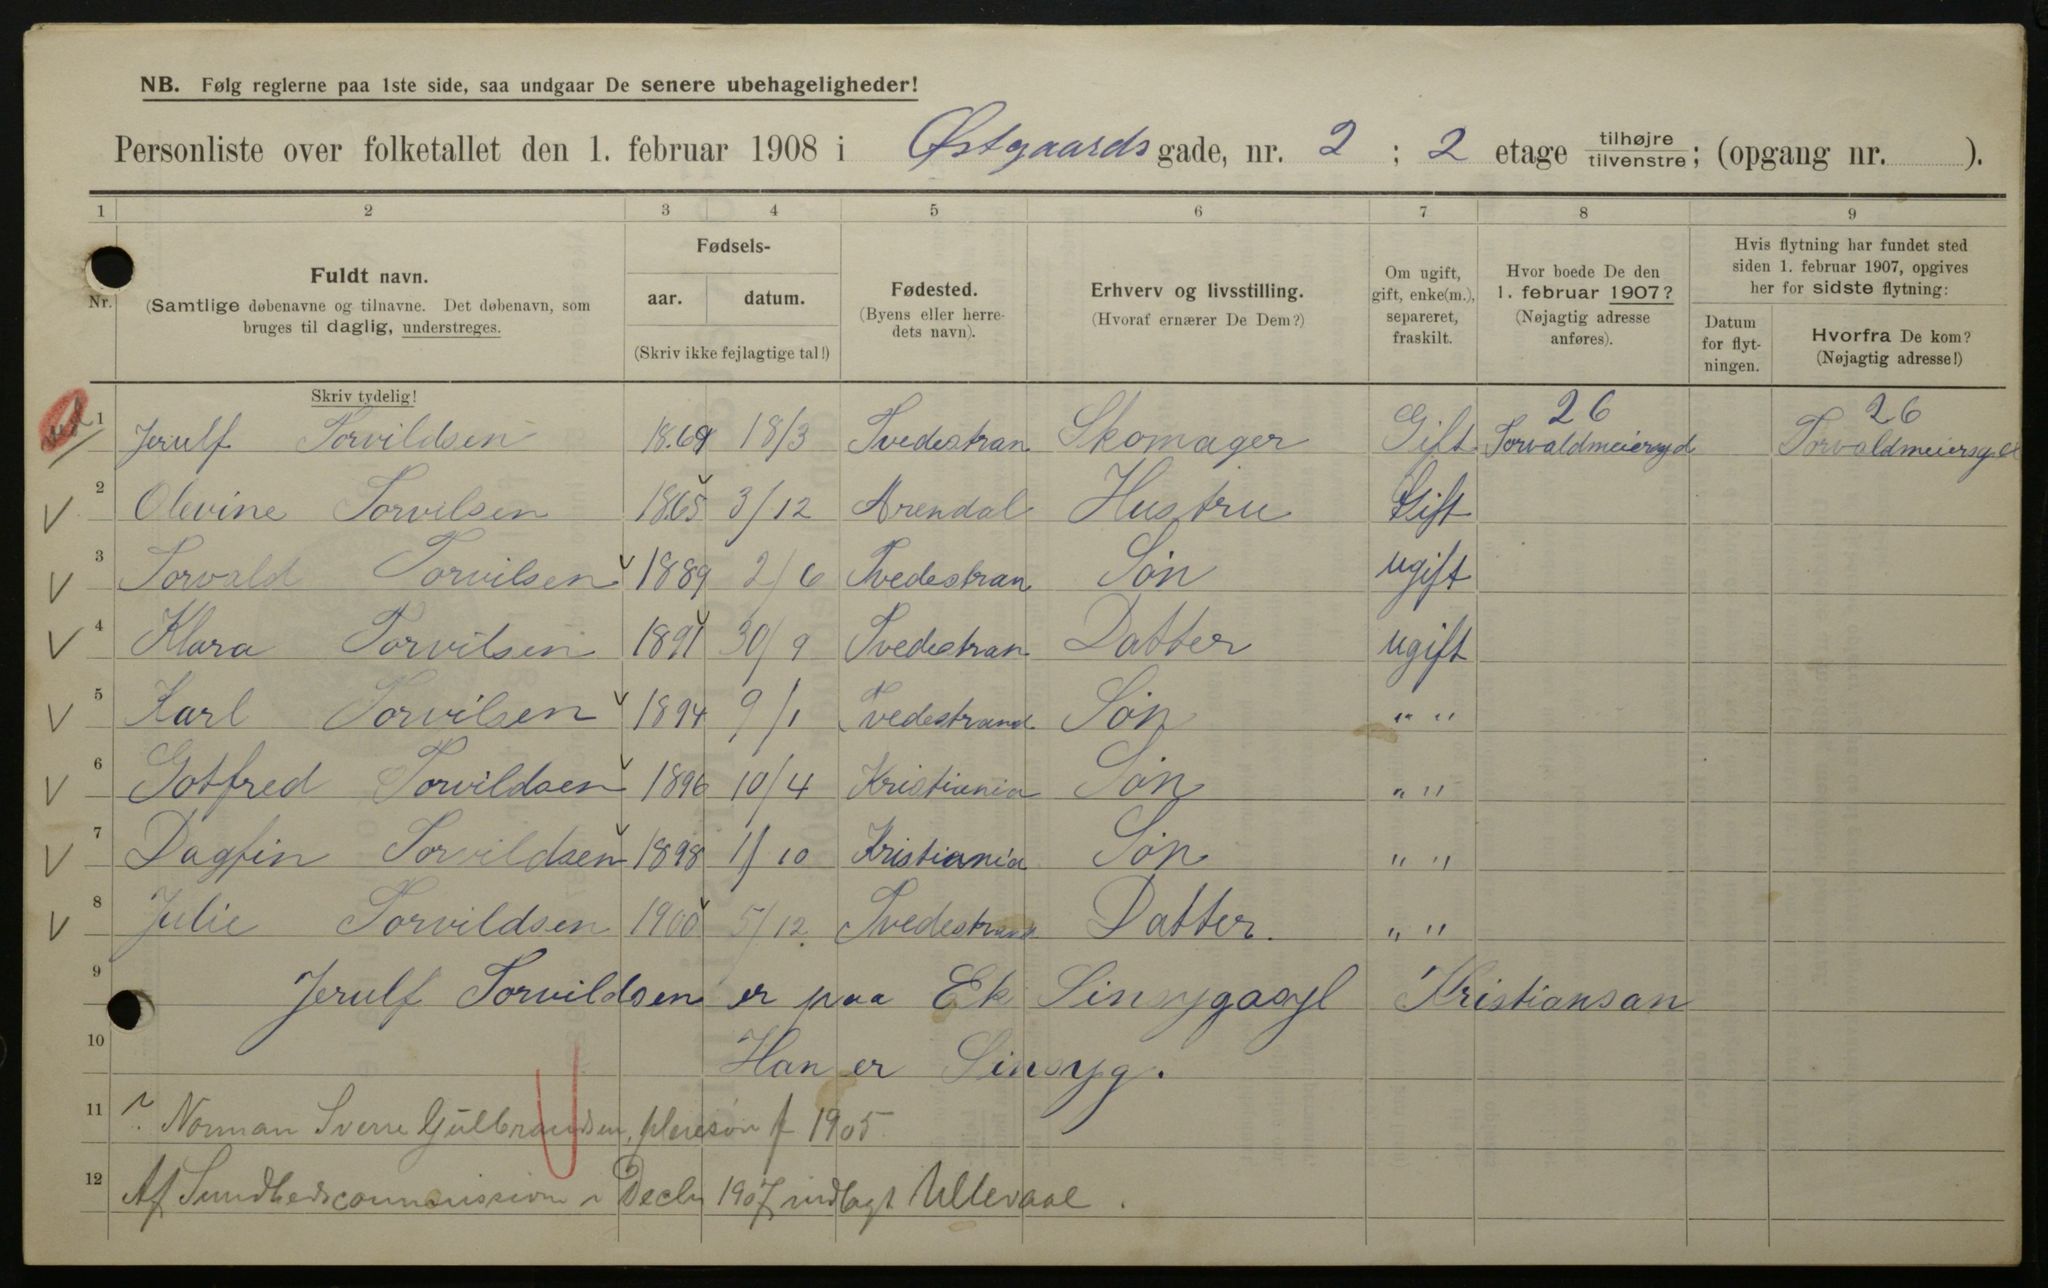 NB. Følg reglerne paa 1ste side, saa undgaar De senere ubehageligheder!
Personliste over folketallet den 1. februar 1908 i Østgaards gade, nr. 2 ; 2 etage tilhøjre/tilvenstre; (opgang nr. ).
1 2 3 4 5 6 7 8 9
Nr.
Fuldt navn.
(Samtlige døbenavne og tilnavne. Det døbenavn, som
bruges til daglig, understreges.
Skriv tydelig!
Fødsels-
aar. datum.
(Skriv ikke fejlagtige tal!)
Fødested.
(Byens eller herre-
dets navn).
Erhverv og livsstilling.
(Hvoraf ernærer De Dem?)
Om ugift,
gift, enke(m.),
separeret,
fraskilt.
Hvor boede De den
1. februar 1907?
(Nøjagtig adresse
anføres).
Hvis flytning har fundet sted
siden 1. februar 1907, opgives
her for sidste flytning:
Datum
for flyt-
ningen.
Hvorfra De kom?
(Nøjagtig adresse!)
26 26
1 Jerulf Torvildsen 1869 18/3 Tvedestran Skomager Gift Torvaldmeiersgd Torvaldmeiersgd
2 Olevine Torvilsen 1865 3/12 Arendal Hustru Gift
3 Torvald Torvilsen 1889 2/6 Tvedestran Søn ugift
4 Klara Torvilsen 1891 30/9 Tvedestran Datter ugift
5 Karl Torvilsen 1894 9/1 Tvedestrand Søn " "
6 Gotfred Torvildsen 1896 10/4 Kristiania Søn " "
7 Dagfin Torvildsen 1898 1/10 Kristiania Søn " "
8 Julie Torvildsen 1900 5/12 Tvedestrand Datter. " "
9 Jerulf Torvildsen er paa Ek Sinsygasyl Kristiansan
10 Han er Sinsyg.
11 Norman Sverre Gulbrandsen, plejesøn f 1905
12 Af Sundhedscommissionen i Decbr 1907 indlagt Ullevaal.